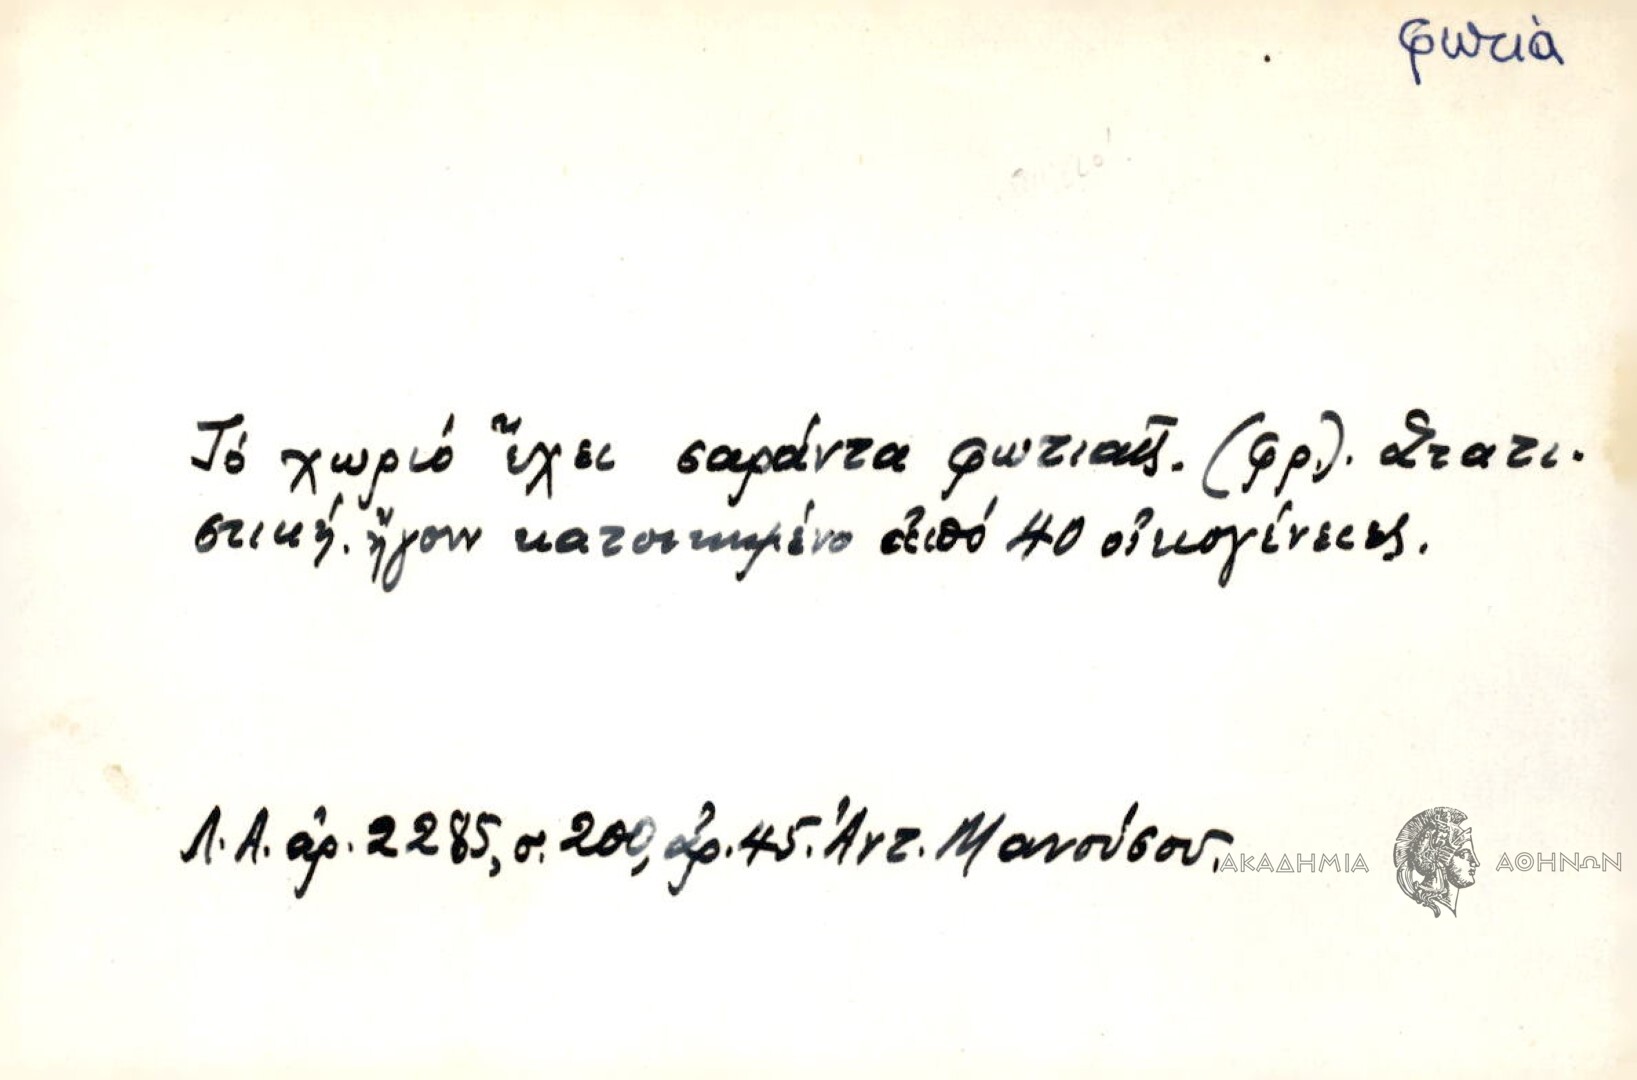 φωτιὰ
Τό χωριό ἔχει σαράντα φωτιαῖς. (φρ.). Στατι-
στική. ἤγουν κατοικημένο ἀπό 40 οἰκογένειες.
Λ.Α. ἀρ. 2285, σ. 200, ἀρ. 45. Ἀντ. Μανούσου.
ΑΚΑΔΗΜΙΑ ΑΘΗΝΩΝ